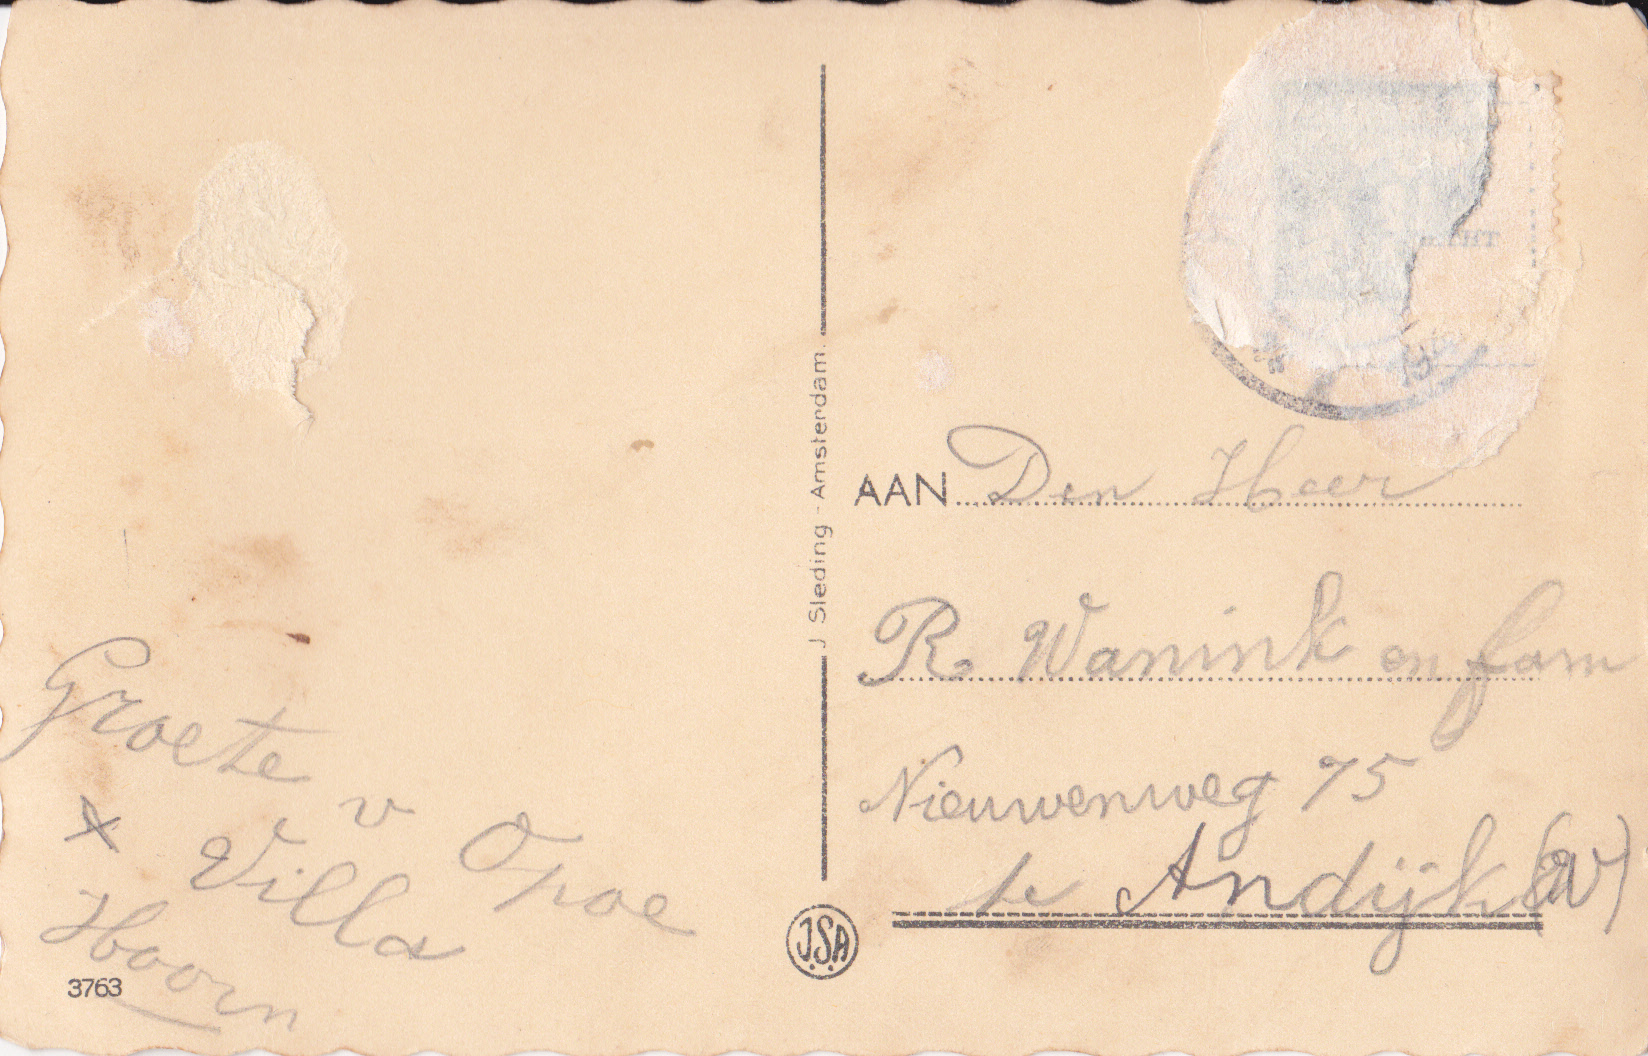 Groete
v Opoe
x Villa
Hoorn
3763
J Sleding - Amsterdam.
J.S.A
AAN Den Heer
R. Wanink en fam
Nieuwenweg 75
te Andijk (W)